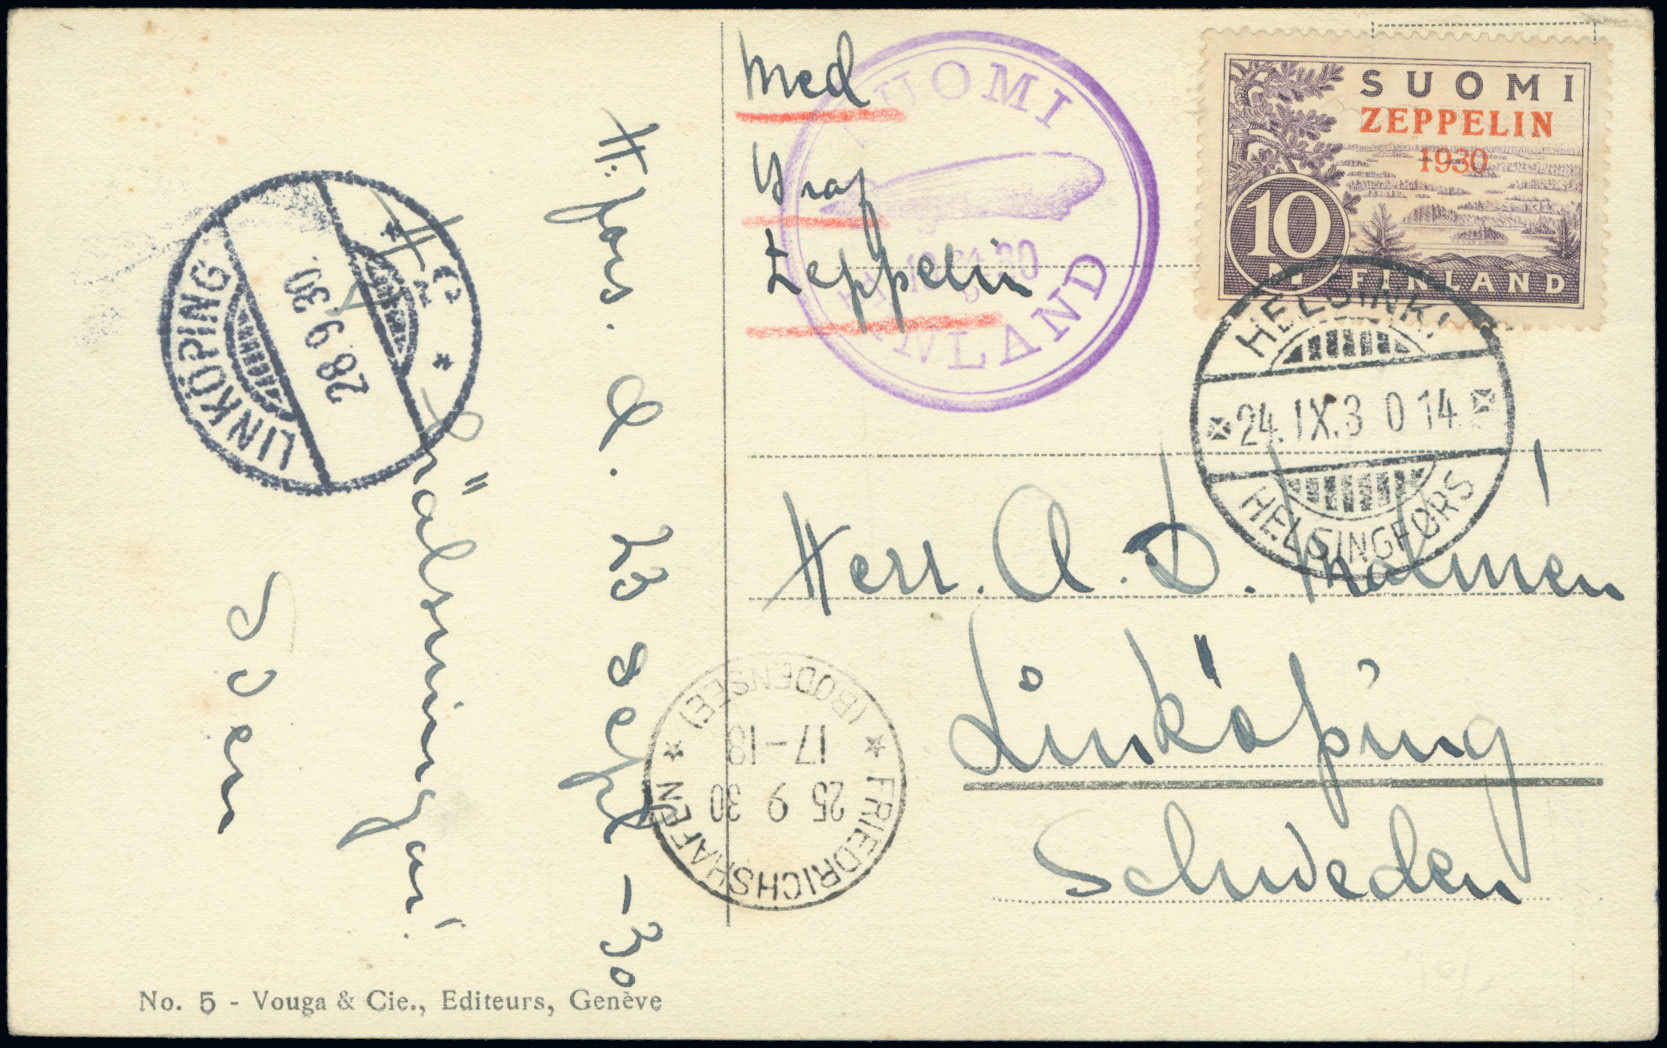 Med
Graf
Zeppelin
SUOMI
FINLAND
SUOMI
ZEPPELIN
1930
10
M.
FINLAND
HELSINKI
24.IX.30 14
HELSINGFORS
Herr. A. D.
Linköping
Schweden
H:fors. d. 23 sept -30
Hälsningar!
Sven
LINKÖPING
28.9.30.
FRIEDRICHSHAFEN
25 9 30
17-18
(BODENSEE)
No. 5 - Vouga & Cie., Editeurs, Genève